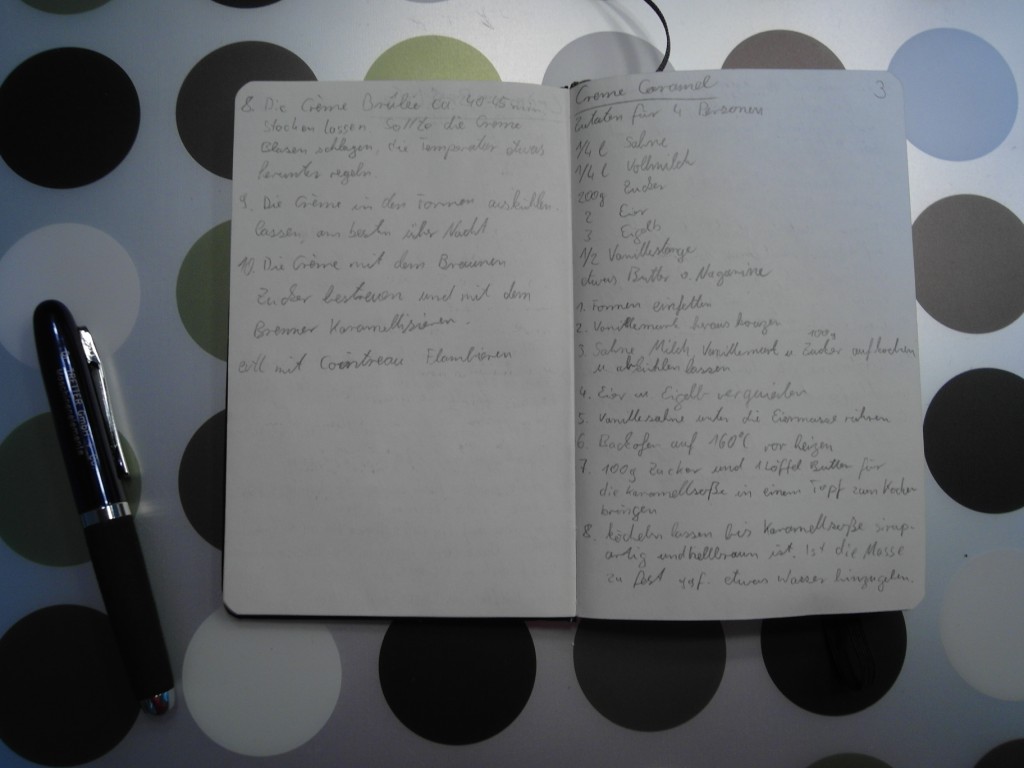 8. Die Crème Brûlée ca 40-45 min
stocken lassen. Sollte die Creme
Blasen schlagen, die Temperatur etwas
herunter regeln
9. Die Crème in den Formen auskühlen
lassen, am besten über Nacht
10. Die Crème mit dem Braunen
Zucker bestreuen und mit dem
Brenner Karamellisieren.
evtl mit Cointreau Flambieren
Creme Caramel
3
Zutaten für 4 Personen
1/4 l Sahne
1/4 l Vollmilch
200g Zucker
2 Eier
3 Eigelb
1/2 Vanillestange
etwas Butter o. Magarine
1. Formen einfetten
2. Vanillemark heraus kratzen
3. Sahne, Milch, Vanillemark u. Zucker 100g aufkochen
u. abkühlen lassen
4. Eier u. Eigelb verquirlen
5. Vanillesahne unter die Eiermasse rühren
6. Backofen auf 160°C vor heizen
7. 100g Zucker und 1 Löffel Butter für
die Karamellsoße in einem Topf zum Kochen
bringen
8. köcheln lassen bis Karamellsoße sirup-
artig und hellbraun ist. Ist die Masse
zu fest ggf. etwas Wasser hinzugeben.